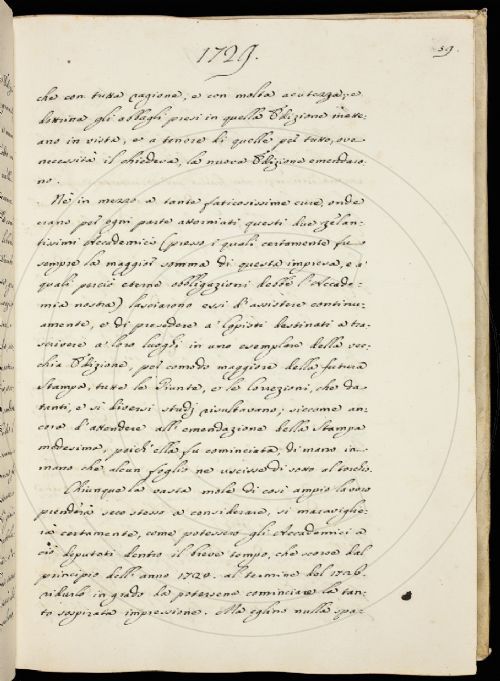 1729.
59.
che con tutta ragione, e con molta acutezza, e
dottrina gli abbagli presi in quella Edizione mett-
ano in vista, e a tenore di quelle poi tutto, ove
necessità il chiedeva, la nuova Edizione emendaro-
no.
Nè in mezzo a tante faticosissime cure, onde
erano per ogni parte attorniati questi due zelan-
tissimi Accademici (presso i quali certamente fu
sempre la maggior somma di questa impresa, e a'
quali perciò eterne obbligazioni debbe l'Accade-
mia nostra) lasciarono essi d'assistere continu-
amente, e di presedere a' Copisti destinati a tra-
scrivere a' loro luoghi in uno esemplare della vec-
chia Edizione, per comodo maggiore della futura
Stampa, tutte le Giunte, e le Correzioni, che da
tanti, e sì diversi studj risultavano; siccome an-
cora d'attendere all'emendazione della Stampa
medesima, poich'ella fu cominciata, di mano in
mano che alcun foglio ne uscisse di sotto al torchio.
Chiunque la vasta mole di così ampio lavoro
prenderà seco stesso a considerare, si maravigle-
rà certamente, come potessero gli Accademici a
ciò deputati dentro il breve tempo, che scorse dal
principio dell'anno 1720. al termine del 1726.
ridurlo in grado da potersene cominciare la tan-
to sospirata impressione. Ma eglino nulla spa-